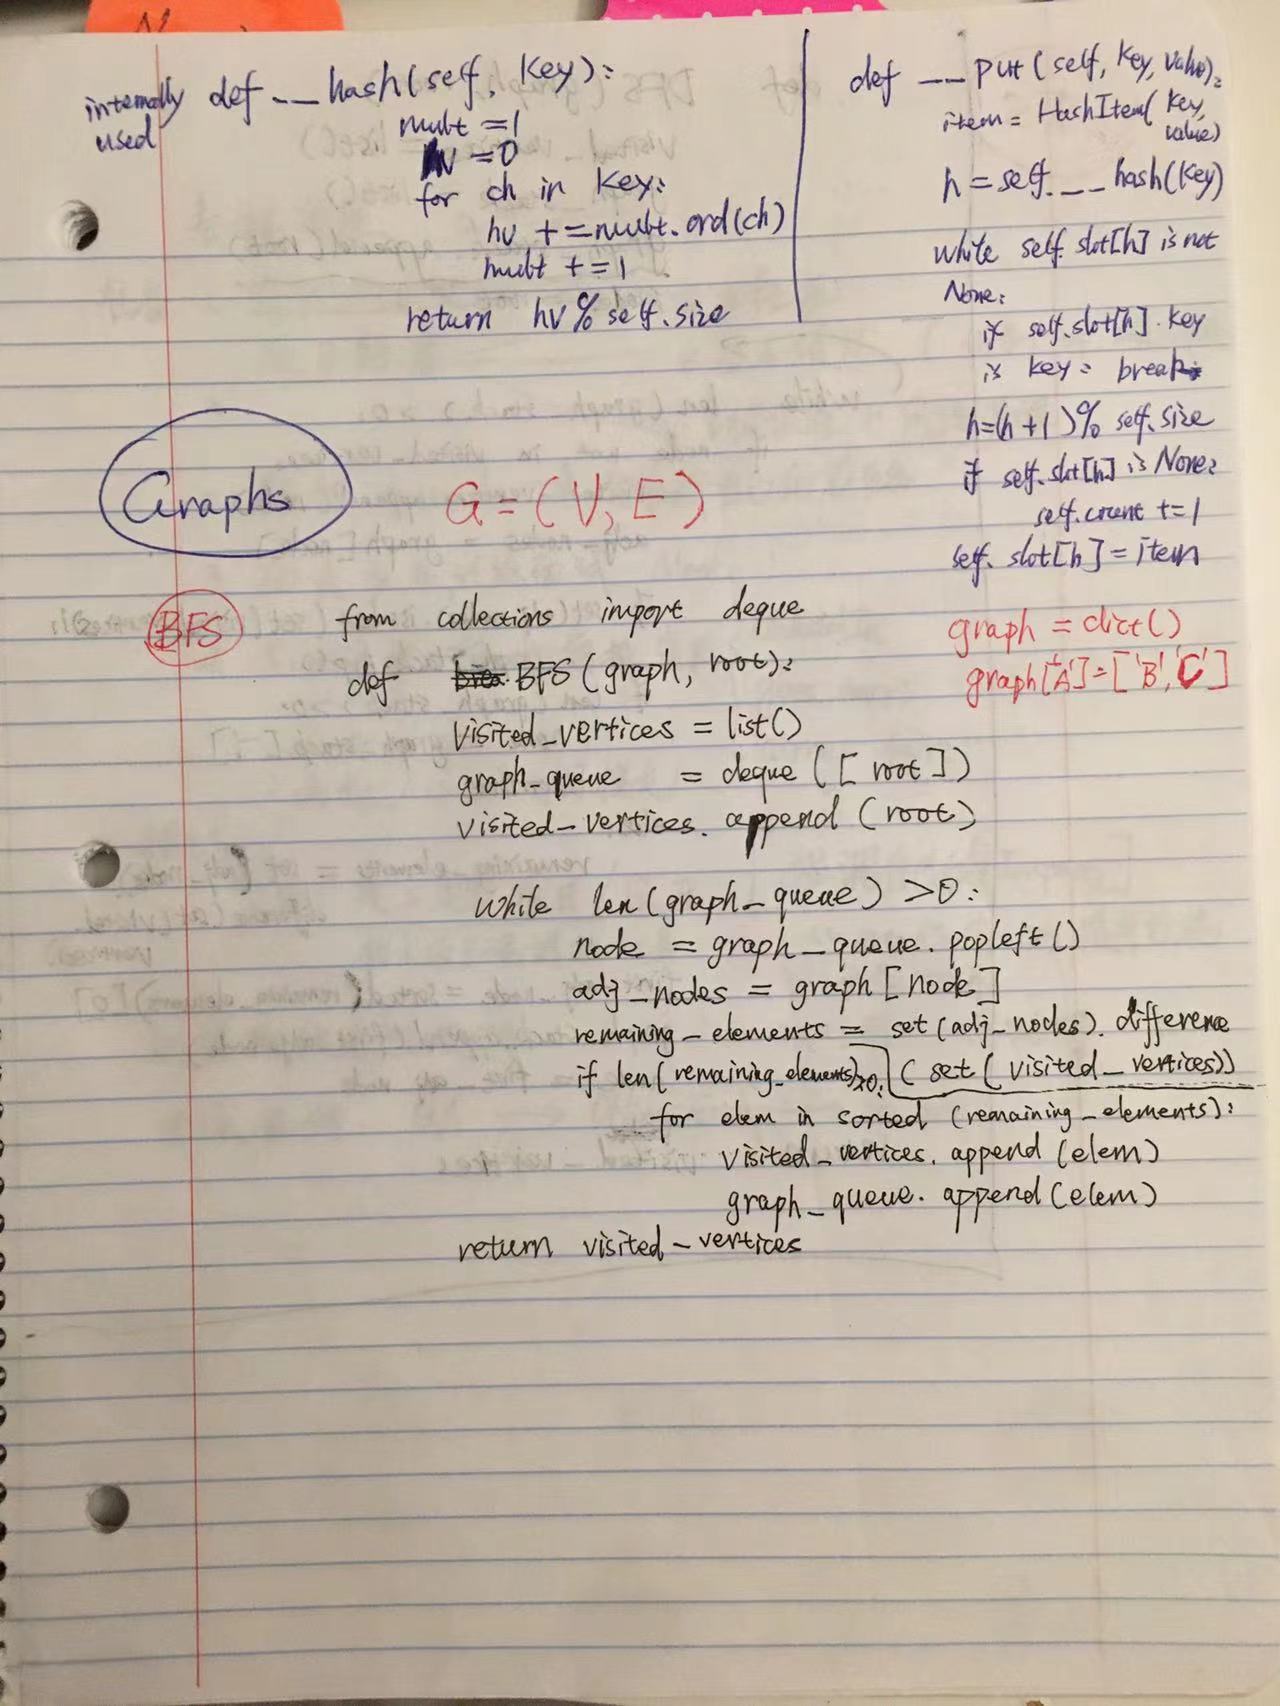 internally def __hash(self, key):
used
mult = 1
hv = 0
for ch in key:
hv += mult.ord(ch)
mult += 1
return hv % self.size
def __put(self, key, value):
item = HashItem(key,
value)
h = self.__hash(key)
while self.slot[h] is not
None:
if self.slot[h].key
is key: break
h=(h+1)% self.size
if self.slot[h] is None:
self.count += 1
self.slot[h] = item
Graphs
G = (V, E)
BFS
from collections import deque
def BFS(graph, root):
visited_vertices = list()
graph_queue = deque([root])
visited_vertices.append(root)
while len(graph_queue) >0:
node = graph_queue.popleft()
adj_nodes = graph[node]
remaining_elements = set(adj_nodes).difference
(set(visited_vertices))
if len(remaining_elements)>0:
for elem in sorted (remaining_elements):
visited_vertices.append(elem)
graph_queue.append(elem)
return visited_vertices
graph = dict()
graph['A']=['B','C']